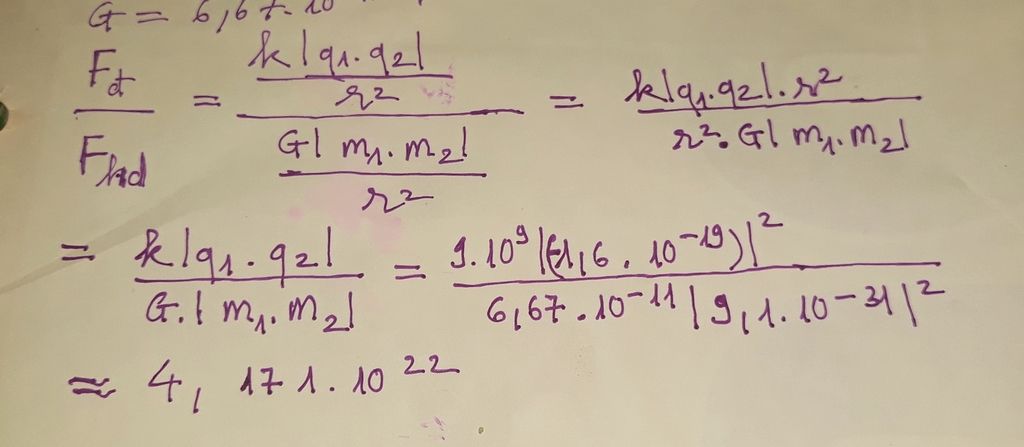 G = 6,67.10
Fđ / Fhd = (k|q₁.q₂| / r²) / (G|m₁.m₂| / r²) = k|q₁.q₂|.r² / r².G|m₁.m₂|
= k|q₁.q₂| / G.|m₁.m₂| = 9.10⁹|(-1,6.10⁻¹⁹)|² / 6,67.10⁻¹¹|9,1.10⁻³¹|²
≈ 4,171.10²²